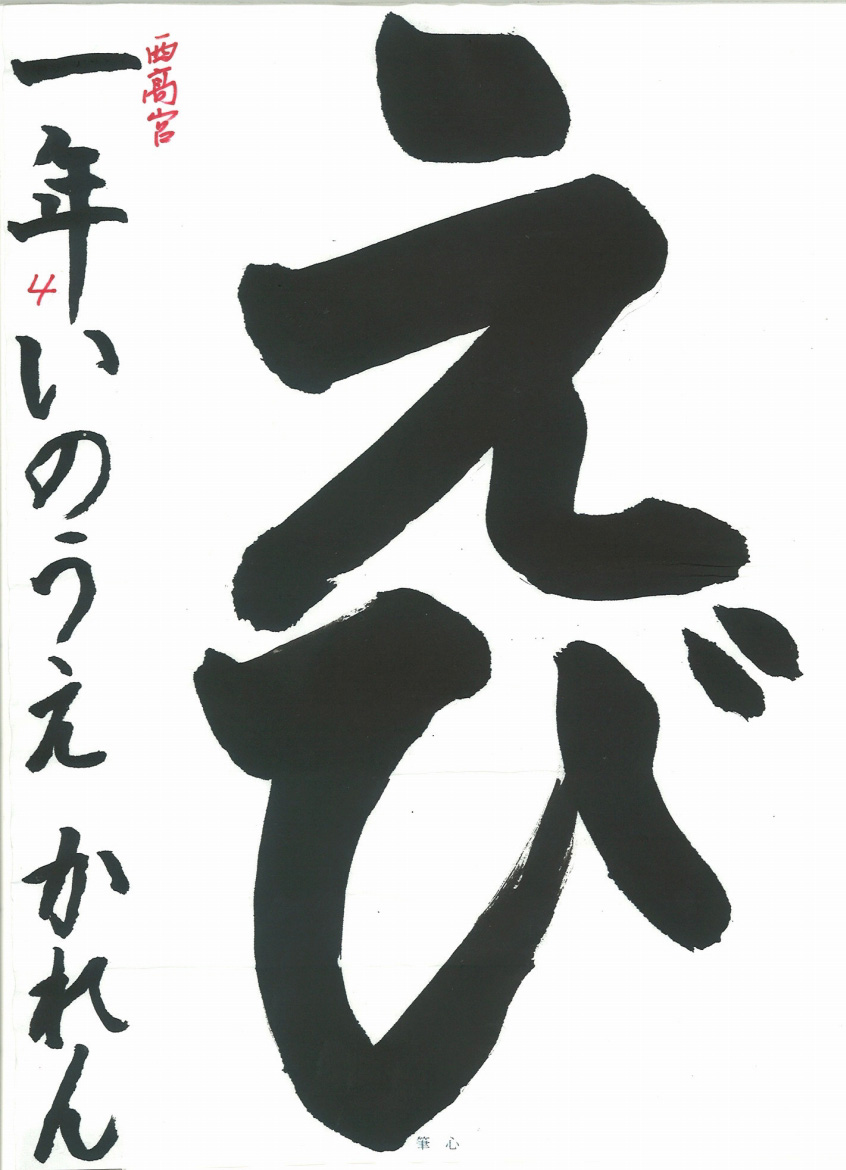 えび
西高宮
一年4いのうえ かれん
筆心